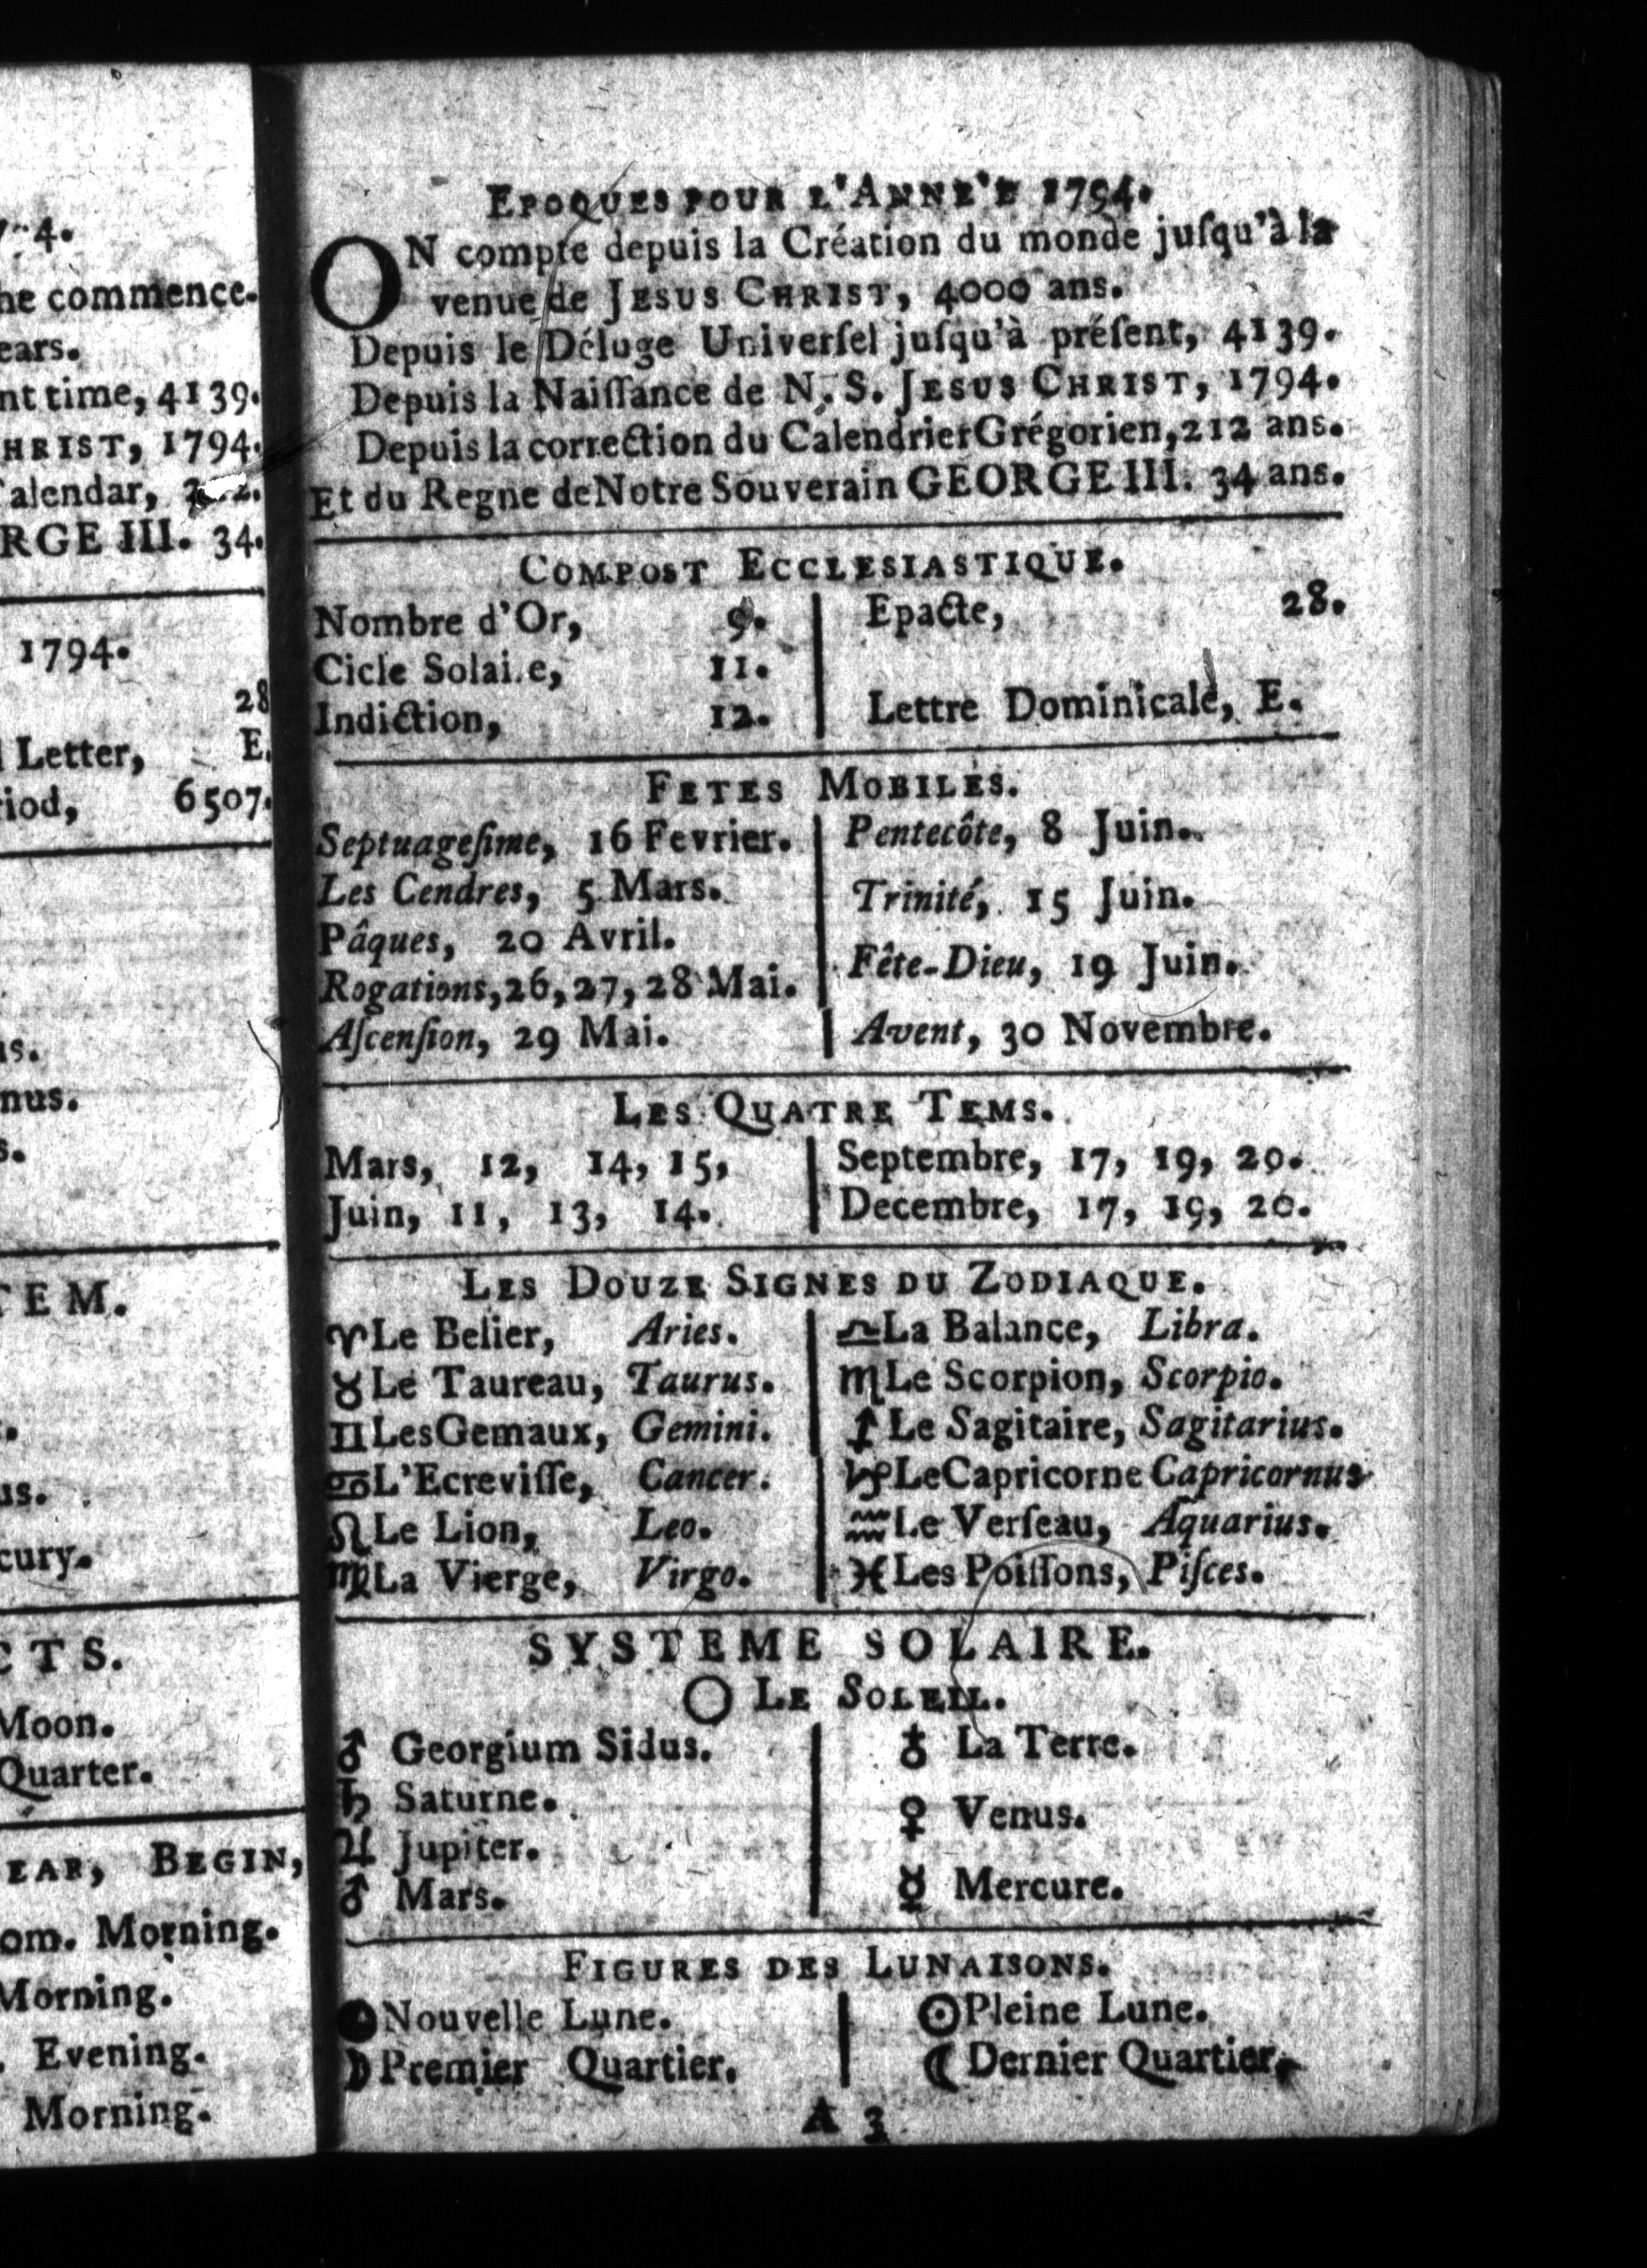 7 4.
he commence-
ears.
nt time, 4139.
HRIST, 1794.
alendar,
RGE III. 34.
1794.
28
Letter, E.
iod, 6507.
us.
nus.
s.
TEM.
us.
cury.
CTS.
Moon.
Quarter.
EAR, BEGIN,
om. Morning.
Morning.
Evening.
Morning.
EPOQUES POUR L'ANNE'E 1794.
ON compte depuis la Création du monde juſqu'à la
venue de JESUS CHRIST, 4000 ans.
Depuis le Déluge Univerſel juſqu'à préſent, 4139.
Depuis la Naiſſance de N. S. JESUS CHRIST, 1794.
Depuis la correction du Calendrier Grégorien, 212 ans.
Et du Regne de Notre Souverain GEORGE III. 34 ans.
COMPOST ECCLESIASTIQUE.
Nombre d'Or, 9.
Cicle Solai.e, 11.
Indiction, 12.
Epacte, 28.
Lettre Dominicale, E.
FETES MOBILES.
Septuageſime, 16 Fevrier.
Les Cendres, 5 Mars.
Pâques, 20 Avril.
Rogations, 26, 27, 28 Mai.
Aſcenſion, 29 Mai.
Pentecôte, 8 Juin.
Trinité, 15 Juin.
Fête-Dieu, 19 Juin.
Avent, 30 Novembre.
LES QUATRE TEMS.
Mars, 12, 14, 15,
Juin, 11, 13, 14.
Septembre, 17, 19, 20.
Decembre, 17, 19, 20.
LES DOUZE SIGNES DU ZODIAQUE.
♈ Le Belier, Aries.
♉ Le Taureau, Taurus.
♊ Les Gemaux, Gemini.
♋ L'Ecreviſſe, Cancer.
♌ Le Lion, Leo.
♍ La Vierge, Virgo.
♎ La Balance, Libra.
♏ Le Scorpion, Scorpio.
♐ Le Sagitaire, Sagitarius.
♑ Le Capricorne Capricornus
♒ Le Verſeau, Aquarius.
♓ Les Poiſſons, Piſces.
SYSTEME SOLAIRE.
○ LE SOLEIL.
♂ Georgium Sidus.
♄ Saturne.
♃ Jupiter.
♂ Mars.
♁ La Terre.
♀ Venus.
☿ Mercure.
FIGURES DES LUNAISONS.
● Nouvelle Lune.
☽ Premier Quartier.
☉ Pleine Lune.
☾ Dernier Quartier,
A 3